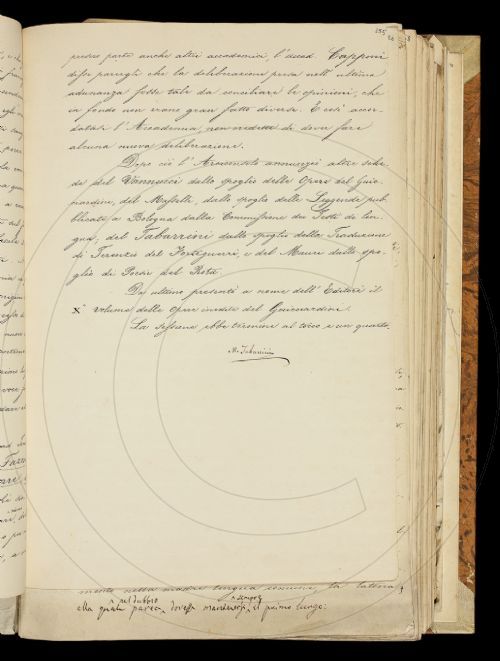 presero parte anche altri accademici, l'accad. Capponi
disse parergli che la deliberazione presa nell'ultima
adunanza fosse tale da conciliare le opinioni, che
in fondo non erano gran fatto diverse. E così accor-
datasi l'Accademia, non credette di dover fare
alcuna nuova deliberazione.
Dopo ciò l'Arciconsolo annunziò altre sche-
de del Vannucci dallo spoglio delle Opere del Guic-
ciardini, del dallo spoglio delle Leggende pub-
blicate a Bologna dalla Commissione dei Testi di lin-
gua, del Tabarrini dallo spoglio della Traduzione
di Terenzio del Forteguerri, e del Mauri dallo spo-
glio di Poesie del
Da ultimo presentò a nome dell'Editore il
X° volume delle Opere inedite del Guicciardini.
La sessione ebbe termine al tocco e un quarto.
M. Tabarrini
mento nella madre lingua comune, la latina
alla quale nel dubbio pareva dovesse mantenersi sempre il primo luogo: